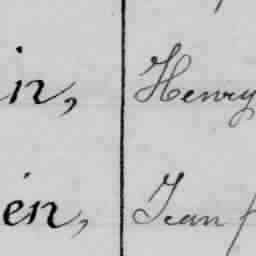 in, Henry
en, Jean